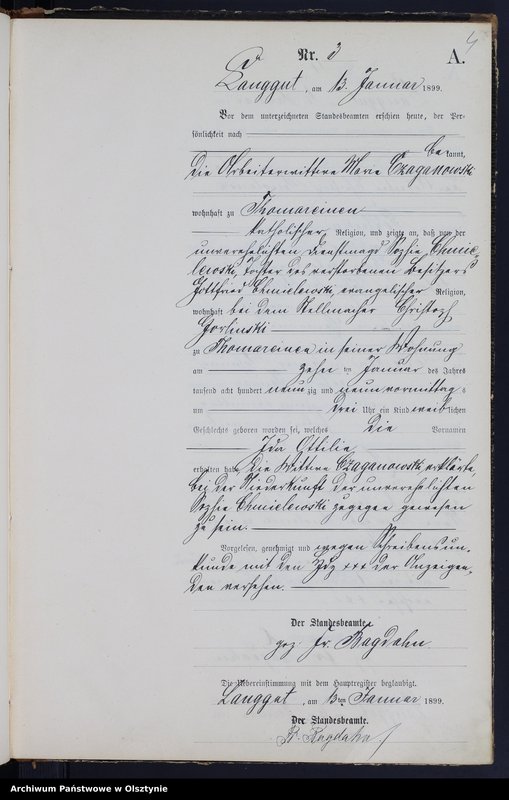 4
Nr. 3
A.
Langgut, am 13. Januar 1899.
Vor dem unterzeichneten Standesbeamten erschien heute, der Per-
sönlichkeit nach
be kannt,
die Arbeiterwittwe Marie Czaganowski
wohnhaft zu Thomareinen
katholischer Religion, und zeigte an, daß von der
unverehelichten Dienstmagd Sophie Chmie-
lewski, Tochter des verstorbenen Besitzers
Gottfried Chmielewski, evangelischer Religion,
wohnhaft bei dem Stellmacher Christoph
Gorlinski
zu Thomareinen in seiner Wohnung
am zehn ten Januar des Jahres
tausend acht hundert neun zig und neun vormittag s
um drei Uhr ein Kind weib lichen
Geschlechts geboren worden sei, welches die Vornamen
Ida Ottilie
erhalten habe. Die Wittwe Czaganowski erklärte,
bei der Niederkunft der unverehelichten
Sophie Chmielewski zugegen gewesen
zu sein.
Vorgelesen, genehmigt und wegen Schreibensun-
kunde mit den Hdz +++ der Anzeigen-
den versehen.
Der Standesbeamte.
gez. Fr. Bagdahn.
Die Uebereinstimmung mit dem Hauptregister beglaubigt.
Langgut, am 13ten Januar 1899.
Der Standesbeamte.
Fr. Bagdahn
Archiwum Państwowe w Olsztynie